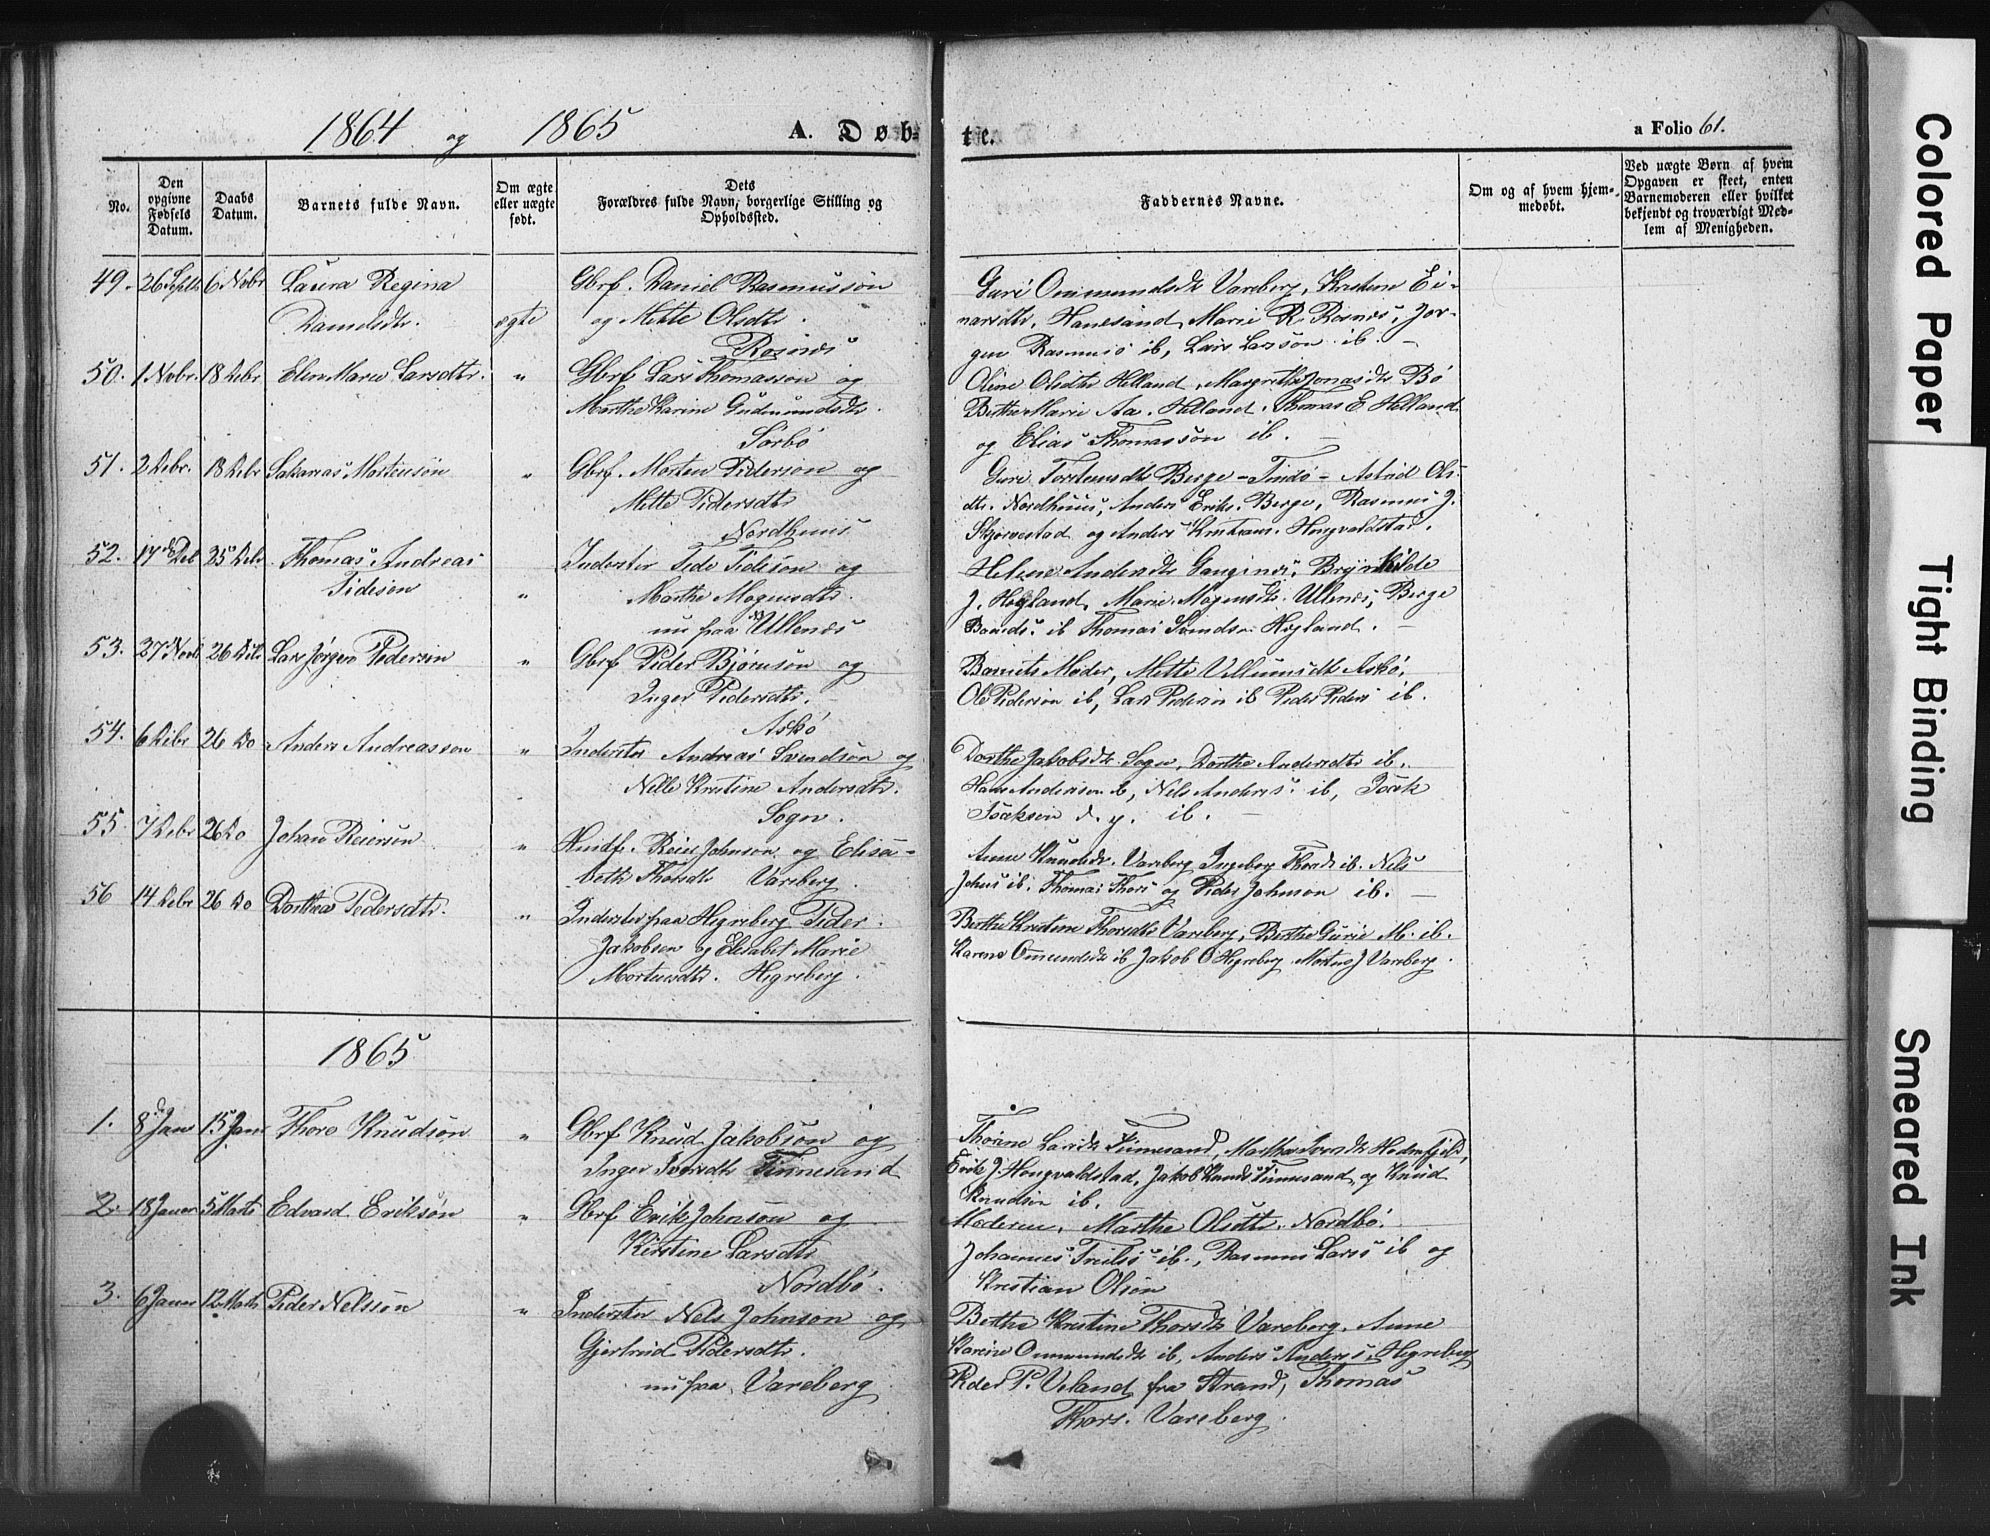 1864 og 1865 A. Døb-
te.
a Folio 61.
No.
Den opgivne Fødsels Datum.
Daabs Datum.
Barnets fulde Navn.
Om ægte eller uægte født.
Dets Forældres fulde Navn, borgerlige Stilling og Opholdssted.
Faddernes Navne.
Om og af hvem hjemmedøbt.
Ved uægte Børn af hvem Opgaven er skeet, enten Barnemoderen eller hvilket bekjendt og troværdigt Medlem af Menigheden.
49. 26 Septb 6 Novbr Laura Regina Gbrf. Daniel Rasmussön
Danielsdtr. ægte og Mette Olsdtr.
Rosnes
Guri Ommundsdtr Vareberg, Kristine Ei-
narsdtr. Hanesand, Marie R. Rosnes, Jör-
gen Rasmuss ib, Lars Larsson ib.
50. 1 Novbr. 18 Debr Elen Marie Larsdtr. " Gbrf Lars Thomasson og
Marthe Karine Gudmundsdtr.
Sörbö
Oline Olsdtr Helland, Margrethe Jonasdtr Bö
Berthe Marie Aa. Helland, Thomas E. Helland
og Elias Thomasson ib.
51. 2 Debr. 18 Debr Sakarias Mortensön " Gbrf. Morten Pederson og
Mette Pedersdtr
Nordhuus
Guri Torstensdtr Berge - Findö - Astrid Ols
dtr. Nordhuus, Anders Eriks. Berge, Rasmus J.
Skjörvestad og Anders Kristians. Hogvaldstad.
52. 17 Deb 25 Debr Thomas Andreas Inderster Tide Tidesön og
Tidesen " Marthe Mogensdtr.
nu paa Ullenes
Helene Andersdtr Gangenes, Brynhilde
J. Hogland, Marie Mogensdtr. Ullenes, Berge
ib Thomas Svends. Hogland.
53. 27 Novb 26 Debr Lars Jörgen Pedersen " Gbrf Peder Björnsön og
Inger Pedersdtr.
Askö
Barnets Moder, Mette Villumsdtr Askö,
Ole Pederson ib, Lars Pedersen ib Peder Peders ib.
54. 6 Debr 26 Do Anders Andreasson " Inderster Andreas Svendsön og
Nille Kristine Andersdtr.
Sogn.
Dorthe Jakobsdtr Sogn, Dorthe Andersdtr ib.
Hans Andersen ib, Nels Anders. ib, Isak
Isaksen d. y. ib.
55. 7 Debr 26 Do Johan Reiersön " Huusf. Reier Johnson og Elisa-
beth Thorsdtr Vareberg.
Anne Knudsdtr. Vareberg, Ingeborg Thorsdtr ib. Nels
Johns ib. Thomas Thors og Peder Johnson ib.
56 14 Debr 26 Do Dorthea Pedersdtr. " Inderster paa Hegreberg Peder
Jakobsen og Elisabet Marie
Mortensdtr. Hegreberg.
Berthe Kristine Thorsdtr Vareberg, Berthe Gurie M. ib.
Karene Ommundsdtr ib Jakob O Hegreberg Morten J Vareberg.
1865
1. 8 Jan 15 Jan Thore Knudsön " Gbrf Knud Jakobson og
Inger Iversdtr Finnesand
Thorine Larsdtr Finnesand, Martha Iversdtr Hodnefjeld,
Erik J. Hongvaldstad, Jakob Knuds Finnesand og Knud
Knudsen ib.
2. 18 Januar 5 Marts Edvard Eriksön " Gbrf Erik Johnson og
Kirstine Larsdtr
Nordbö.
Moderen, Marthe Olsdtr. Nordbö.
Johannes ib., Rasmus Larss ib og
Kristian Olsön
3. 6 Januar 12 Marts Peder Nelssön " Inderster Nels Johnson og
Gjertrud Pedersdtr.
nu paa Vareberg
Berthe Kristine Thorsdtr Vareberg. Anne
Karine Ommundsdtr ib, Anders Anderss. Hegreberg
Peder P. Veland fra Strand, Thomas
Thors. Vareberg.
Colored Paper
Tight Binding
Smeared Ink